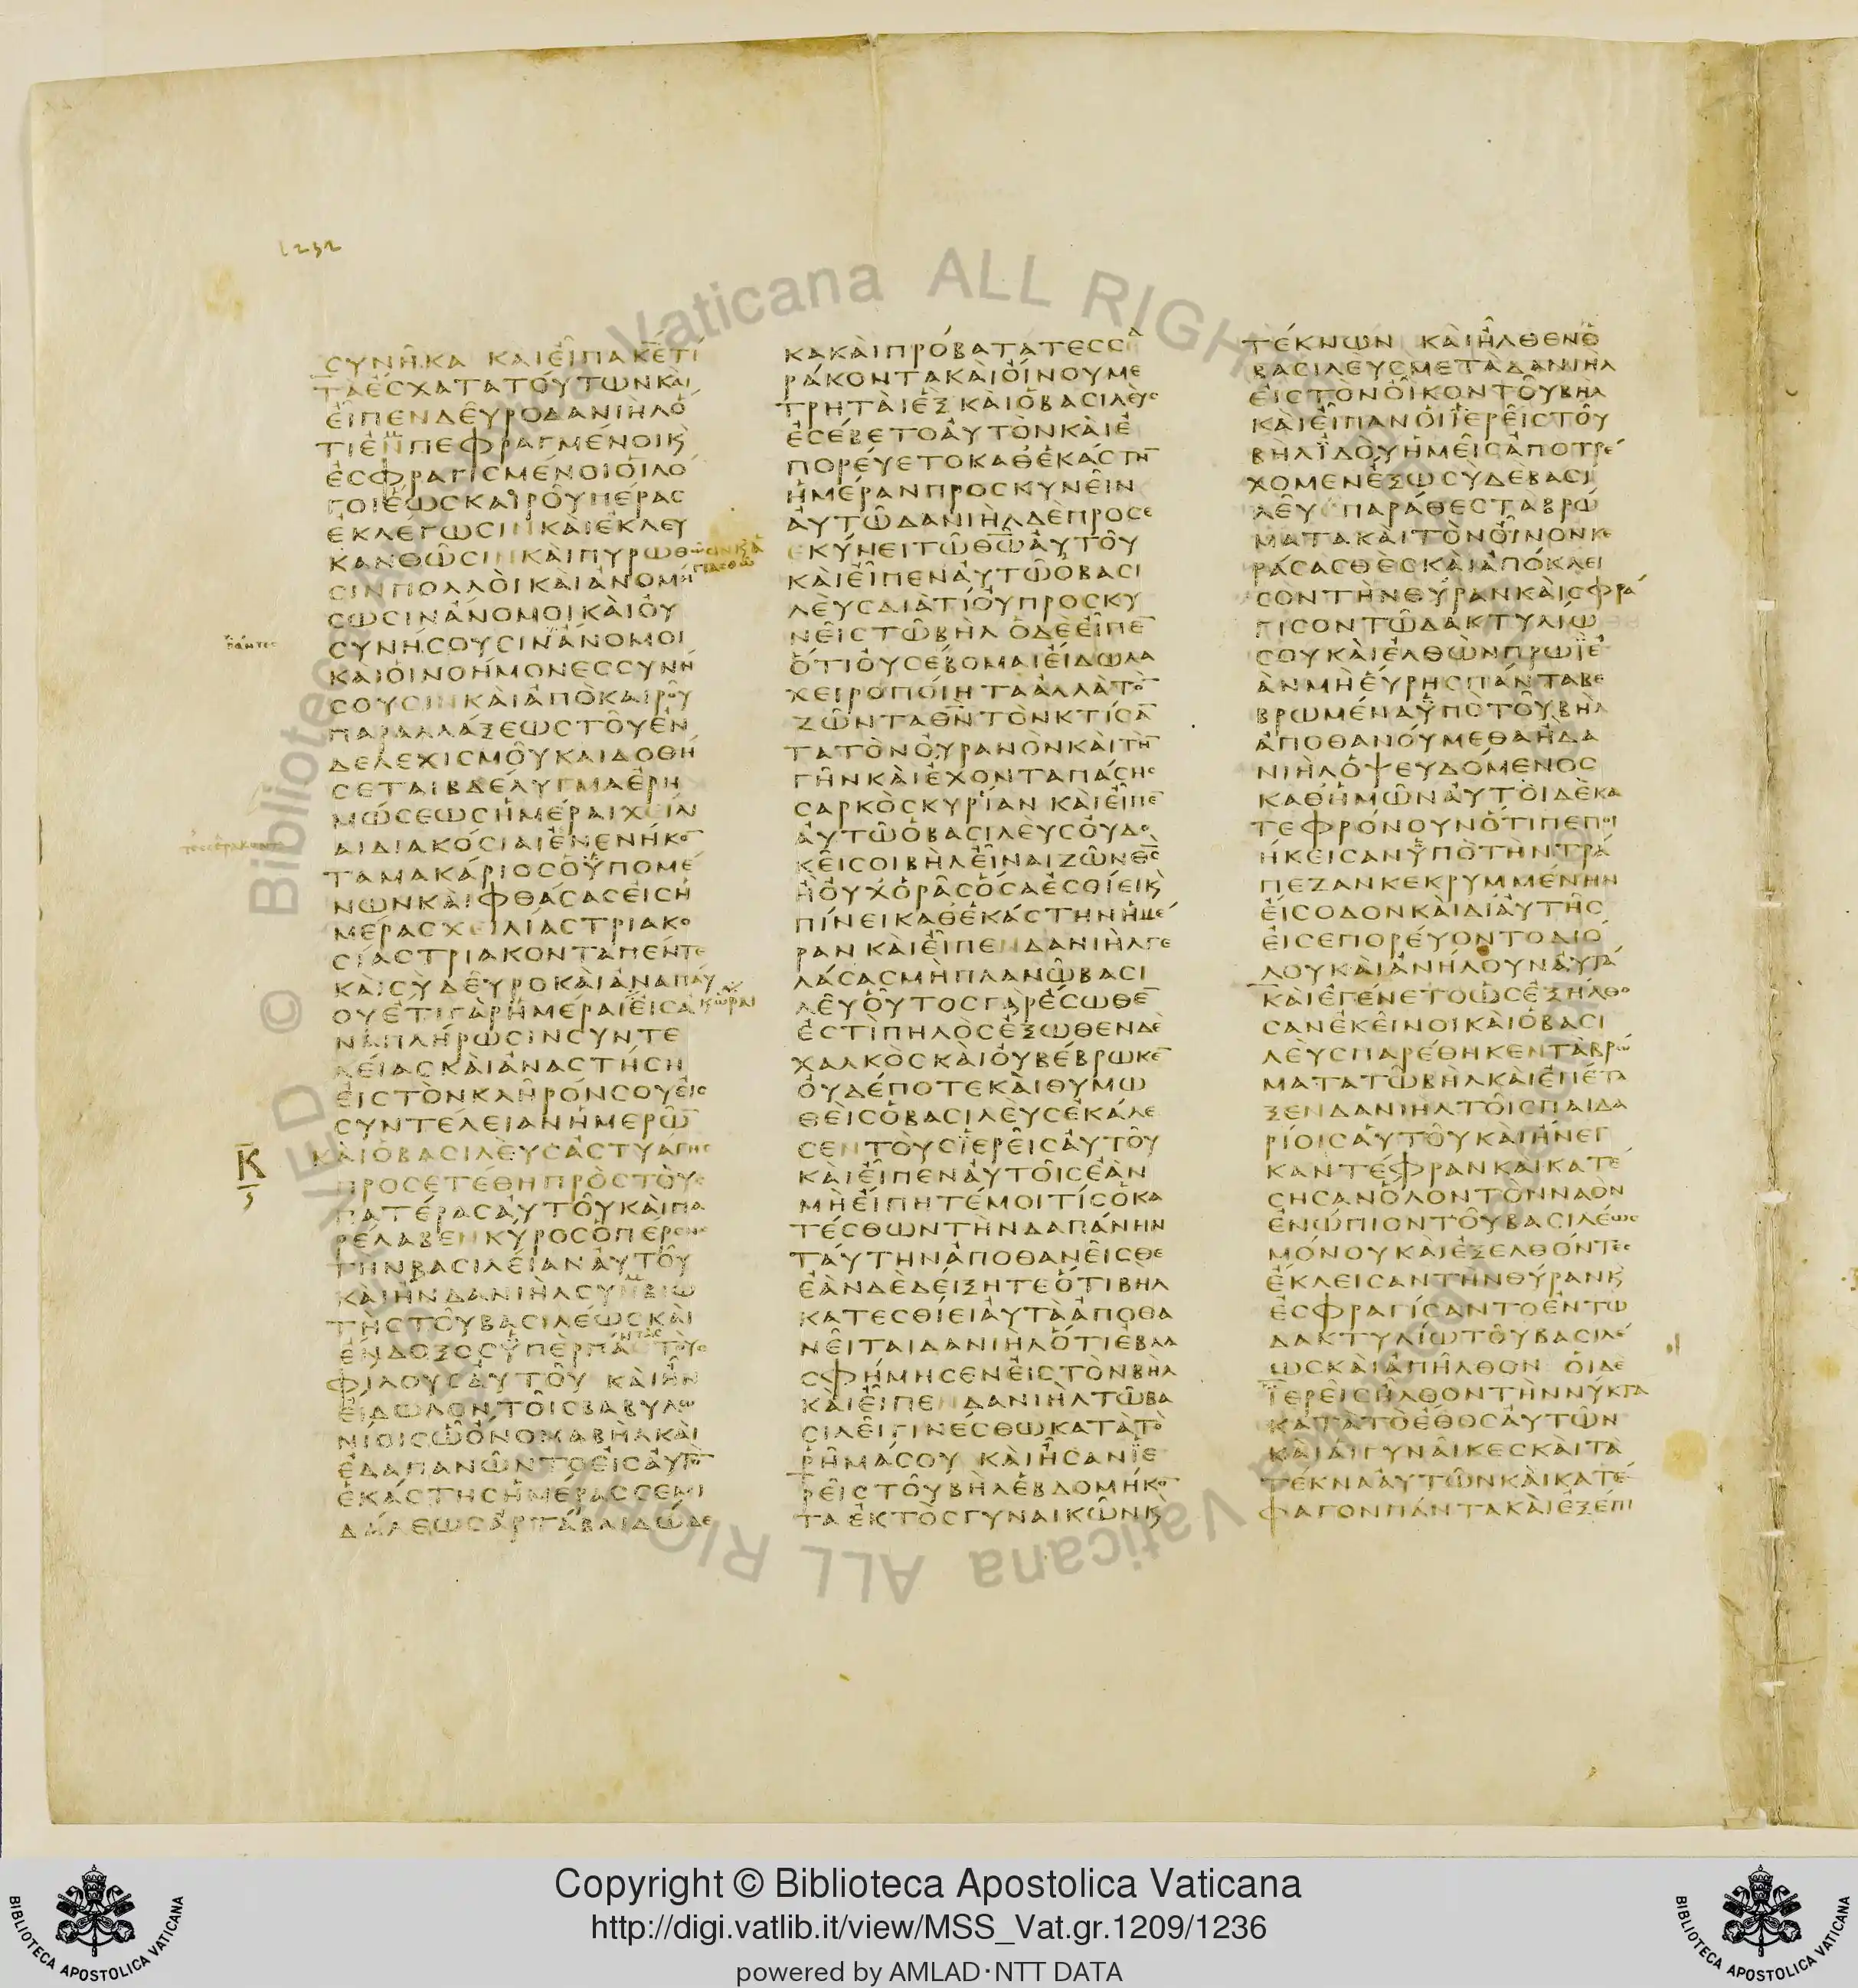 1232
ϹΥΝΗΚΑ ΚΑΙΕΙΠΑΚΕΤΙ
ΤΑΕϹΧΑΤΑΤΟΥΤΩΝΚΑΙ
ΕΙΠΕΝΔΕΥΡΟΔΑΝΙΗΛΟ
ΤΙΕΝΠΕΦΡΑΓΜΕΝΟΙΚ
ΕϹΦΡΑΓΙϹΜΕΝΟΙΟΙΛΟ
ΓΟΙΕΩϹΚΑΙΡΟΥΠΕΡΑϹ
ΕΚΛΕΓΩϹΙΝΚΑΙΕΚΛΕΥ
ΚΑΝΘΩϹΙΝΚΑΙΠΥΡΩΘΩ
ϹΙΝΠΟΛΛΟΙΚΑΙΑΝΟΜΗ
ϹΩϹΙΝΑΝΟΜΟΙΚΑΙΟΥ
ϹΥΝΗϹΟΥϹΙΝΑΝΟΜΟΙ
ΚΑΙΟΙΝΟΗΜΟΝΕϹϹΥΝΗ
ϹΟΥϹΙΝΚΑΙΑΠΟΚΑΙΡΟΥ
ΠΑΡΑΛΛΑΞΕΩϹΤΟΥΕΝ
ΔΕΛΕΧΙϹΜΟΥΚΑΙΔΟΘΗ
ϹΕΤΑΙΒΔΕΛΥΓΜΑΕΡΗ
ΜΩϹΕΩϹΗΜΕΡΑΙΧΕΙΛΙ
ΑΙΔΙΑΚΟϹΙΑΙΕΝΕΝΗΚΟ̅
ΤΑΜΑΚΑΡΙΟϹΟΥΠΟΜΕ
ΝΩΝΚΑΙΦΘΑϹΑϹΕΙϹΗ
ΜΕΡΑϹΧΕΙΛΙΑϹΤΡΙΑΚΟ
ϹΙΑϹΤΡΙΑΚΟΝΤΑΠΕΝΤΕ
ΚΑΙϹΥΔΕΥΡΟΚΑΙΑΝΑΠΑΥ
ΟΥΕΤΙΓΑΡΗΜΕΡΑΙΕΙϹΑ
ΝΑΠΛΗΡΩϹΙΝϹΥΝΤΕ
ΛΕΙΑϹΚΑΙΑΝΑϹΤΗϹΗ
ΕΙϹΤΟΝΚΛΗΡΟΝϹΟΥΕΙϹ
ϹΥΝΤΕΛΕΙΑΝΗΜΕΡΩ̅
ΚΑΙΟΒΑϹΙΛΕΥϹΑϹΤΥΑΓΗϹ
ΠΡΟϹΕΤΕΘΗΠΡΟϹΤΟΥϹ
ΠΑΤΕΡΑϹΑΥΤΟΥΚΑΙΠΑ
ΡΕΛΑΒΕΝΚΥΡΟϹΟΠΕΡϹΗϹ
ΤΗΝΒΑϹΙΛΕΙΑΝΑΥΤΟΥ
ΚΑΙΗΝΔΑΝΙΗΛϹΥΝΒΙΩ
ΤΗϹΤΟΥΒΑϹΙΛΕΩϹΚΑΙ
ΕΝΔΟΞΟϹΥΠΕΡΠΑ̅ΤΑϹΤΟΥϹ
ΦΙΛΟΥϹΑΥΤΟΥ ΚΑΙΗΝ
ΕΙΔΩΛΟΝΤΟΙϹΒΑΒΥΛΩ
ΝΙΟΙϹΩΟΝΟΜΑΒΗΛΚΑΙ
ΕΔΑΠΑΝΩΝΤΟΕΙϹΑΥΤΟ̅
ΕΚΑϹΤΗϹΗΜΕΡΑϹϹΕΜΙ
ΔΑΛΕΩϹΑΡΤΑΒΑΙΔΩΔΕ
ΚΑΚΑΙΠΡΟΒΑΤΑΤΕϹϹΑ
ΡΑΚΟΝΤΑΚΑΙΟΙΝΟΥΜΕ
ΤΡΗΤΑΙΕΞΚΑΙΟΒΑϹΙΛΕΥϹ
ΕϹΕΒΕΤΟΑΥΤΟΝΚΑΙΕ
ΠΟΡΕΥΕΤΟΚΑΘΕΚΑϹΤΗ̅
ΗΜΕΡΑΝΠΡΟϹΚΥΝΕΙΝ
ΑΥΤΩΔΑΝΙΗΛΔΕΠΡΟϹΕ
ΚΥΝΕΙΤΩΘ̅Ω̅ΑΥΤΟΥ
ΚΑΙΕΙΠΕΝΑΥΤΩΟΒΑϹΙ
ΛΕΥϹΔΙΑΤΙΟΥΠΡΟϹΚΥ
ΝΕΙϹΤΩΒΗΛ ΟΔΕΕΙΠΕ̅
ΟΤΙΟΥϹΕΒΟΜΑΙΕΙΔΩΛΑ
ΧΕΙΡΟΠΟΙΗΤΑΑΛΛΑΤΟ̅
ΖΩΝΤΑΘ̅Ν̅ΤΟΝΚΤΙϹΑ̅
ΤΑΤΟΝΟΥΡΑΝΟΝΚΑΙΤΗ̅
ΓΗΝΚΑΙΕΧΟΝΤΑΠΑϹΗϹ
ϹΑΡΚΟϹΚΥΡΙΑΝ ΚΑΙΕΙΠΕ̅
ΑΥΤΩΟΒΑϹΙΛΕΥϹΟΥΔΟ
ΚΕΙϹΟΙΒΗΛΕΙΝΑΙΖΩΝΘ̅Ϲ̅
ΗΟΥΧΟΡΑϹΟϹΑΕϹΘΙΕΙΚ
ΠΙΝΕΙΚΑΘΕΚΑϹΤΗΝΗΜΕ
ΡΑΝ ΚΑΙΕΙΠΕΝΔΑΝΙΗΛΓΕ
ΛΑϹΑϹΜΗΠΛΑΝΩΒΑϹΙ
ΛΕΥΟΥΤΟϹΓΑΡΕϹΩΘΕ̅
ΕϹΤΙΠΗΛΟϹΕΞΩΘΕΝΔΕ
ΧΑΛΚΟϹΚΑΙΟΥΒΕΒΡΩΚΕ̅
ΟΥΔΕΠΟΤΕΚΑΙΘΥΜΩ
ΘΕΙϹΟΒΑϹΙΛΕΥϹΕΚΑΛΕ
ϹΕΝΤΟΥϹΙΕΡΕΙϹΑΥΤΟΥ
ΚΑΙΕΙΠΕΝΑΥΤΟΙϹΕΑΝ
ΜΗΕΙΠΗΤΕΜΟΙΤΙϹΟΚΑ
ΤΕϹΘΩΝΤΗΝΔΑΠΑΝΗΝ
ΤΑΥΤΗΝΑΠΟΘΑΝΕΙϹΘΕ
ΕΑΝΔΕΔΕΙΞΗΤΕΟΤΙΒΗΛ
ΚΑΤΕϹΘΙΕΙΑΥΤΑΑΠΟΘΑ
ΝΕΙΤΑΙΔΑΝΙΗΛΟΤΙΕΒΛΑ
ϹΦΗΜΗϹΕΝΕΙϹΤΟΝΒΗΛ
ΚΑΙΕΙΠΕΝΔΑΝΙΗΛΤΩΒΑ
ϹΙΛΕΙΓΙΝΕϹΘΩΚΑΤΑΤΟ
ΡΗΜΑϹΟΥ ΚΑΙΗϹΑΝΙΕ
ΡΕΙϹΤΟΥΒΗΛΕΒΔΟΜΗΚΟ̅
ΤΑΕΚΤΟϹΓΥΝΑΙΚΩΝΚ
ΤΕΚΝΩΝ ΚΑΙΗΛΘΕΝΟ
ΒΑϹΙΛΕΥϹΜΕΤΑΔΑΝΙΗΛ
ΕΙϹΤΟΝΟΙΚΟΝΤΟΥΒΗΛ
ΚΑΙΕΙΠΑΝΟΙΙΕΡΕΙϹΤΟΥ
ΒΗΛΙΔΟΥΗΜΕΙϹΑΠΟΤΡΕ
ΧΟΜΕΝΕΞΩϹΥΔΕΒΑϹΙ
ΛΕΥ ΠΑΡΑΘΕϹΤΑΒΡΩ
ΜΑΤΑΚΑΙΤΟΝΟΙΝΟΝΚΕ
ΡΑϹΑϹΘΕϹΚΑΙΑΠΟΚΛΕΙ
ϹΟΝΤΗΝΘΥΡΑΝΚΑΙϹΦΡΑ
ΓΙϹΟΝΤΩΔΑΚΤΥΛΙΩ
ϹΟΥΚΑΙΕΛΘΩΝΠΡΩΙΕ
ΑΝΜΗΕΥΡΗϹΠΑΝΤΑΒΕ
ΒΡΩΜΕΝΑΥΠΟΤΟΥΒΗΛ
ΑΠΟΘΑΝΟΥΜΕΘΑΗΔΑ
ΝΙΗΛΟΨΕΥΔΟΜΕΝΟϹ
ΚΑΘΗΜΩΝΑΥΤΟΙΔΕΚΑ
ΤΕΦΡΟΝΟΥΝΟΤΙΠΕΠΟΙ
ΗΚΕΙϹΑΝΥΠΟΤΗΝΤΡΑ
ΠΕΖΑΝΚΕΚΡΥΜΜΕΝΗΝ
ΕΙϹΟΔΟΝΚΑΙΔΙΑΥΤΗϹ
ΕΙϹΕΠΟΡΕΥΟΝΤΟΔΙΟ
ΛΟΥΚΑΙΑΝΗΛΟΥΝΑΥΤΑ
ΚΑΙΕΓΕΝΕΤΟΩϹΕΞΗΛΘΟ
ϹΑΝΕΚΕΙΝΟΙΚΑΙΟΒΑϹΙ
ΛΕΥϹΠΑΡΕΘΗΚΕΝΤΑΒΡΩ
ΜΑΤΑΤΩΒΗΛΚΑΙΕΠΕΤΑ
ΞΕΝΔΑΝΙΗΛΤΟΙϹΠΑΙΔΑ
ΡΙΟΙϹΑΥΤΟΥΚΑΙΗΝΕΓ
ΚΑΝΤΕΦΡΑΝΚΑΙΚΑΤΕ
ϹΗϹΑΝΟΛΟΝΤΟΝΝΑΟΝ
ΕΝΩΠΙΟΝΤΟΥΒΑϹΙΛΕΩϹ
ΜΟΝΟΥΚΑΙΕΞΕΛΘΟΝΤΕϹ
ΕΚΛΕΙϹΑΝΤΗΝΘΥΡΑΝΚ
ΕϹΦΡΑΓΙϹΑΝΤΟΕΝΤΩ
ΔΑΚΤΥΛΙΩΤΟΥΒΑϹΙΛΕ
ΩϹΚΑΙΑΠΗΛΘΟΝ ΟΙΔΕ
ΙΕΡΕΙϹΗΛΘΟΝΤΗΝΝΥΚΤΑ
ΚΑΤΑΤΟΕΘΟϹΑΥΤΩΝ
ΚΑΙΑΙΓΥΝΑΙΚΕϹΚΑΙΤΑ
ΤΕΚΝΑΑΥΤΩΝΚΑΙΚΑΤΕ
ΦΑΓΟΝΠΑΝΤΑΚΑΙΕΞΕΠΙ
Copyright © Biblioteca Apostolica Vaticana
http://digi.vatlib.it/view/MSS_Vat.gr.1209/1236
powered by AMLAD·NTT DATA
BIBLIOTECA APOSTOLICA VATICANA
BIBLIOTECA APOSTOLICA VATICANA